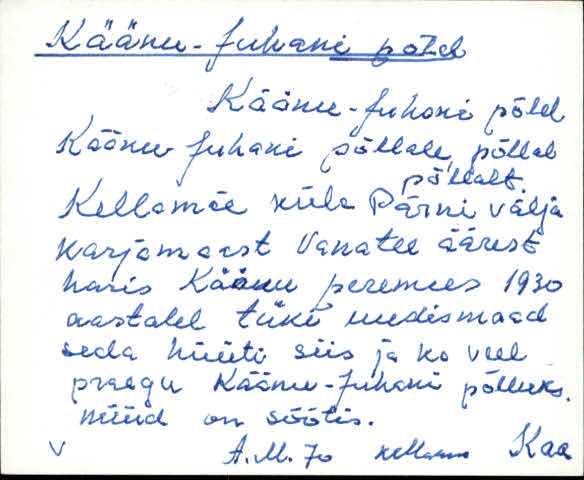 Käänu-Juhani põld
Käänu-Juhani põld
Käänu Juhani põllale, põllal
põllalt.
Kellamäe küla Pärni välja
karjamaast Vanatee äärest
haris Käänu peremees 1930
aastatel tüki uudismaad
seda hüüti siis ja ka veel
praegu Käänu-Juhani põlluks.
nüüd on söötis.
V A. M. 70 Kaa